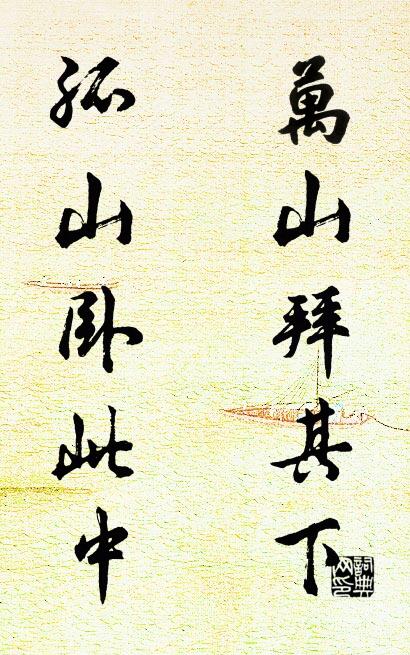 萬山拜其下
孤山卧此中
詞典网印